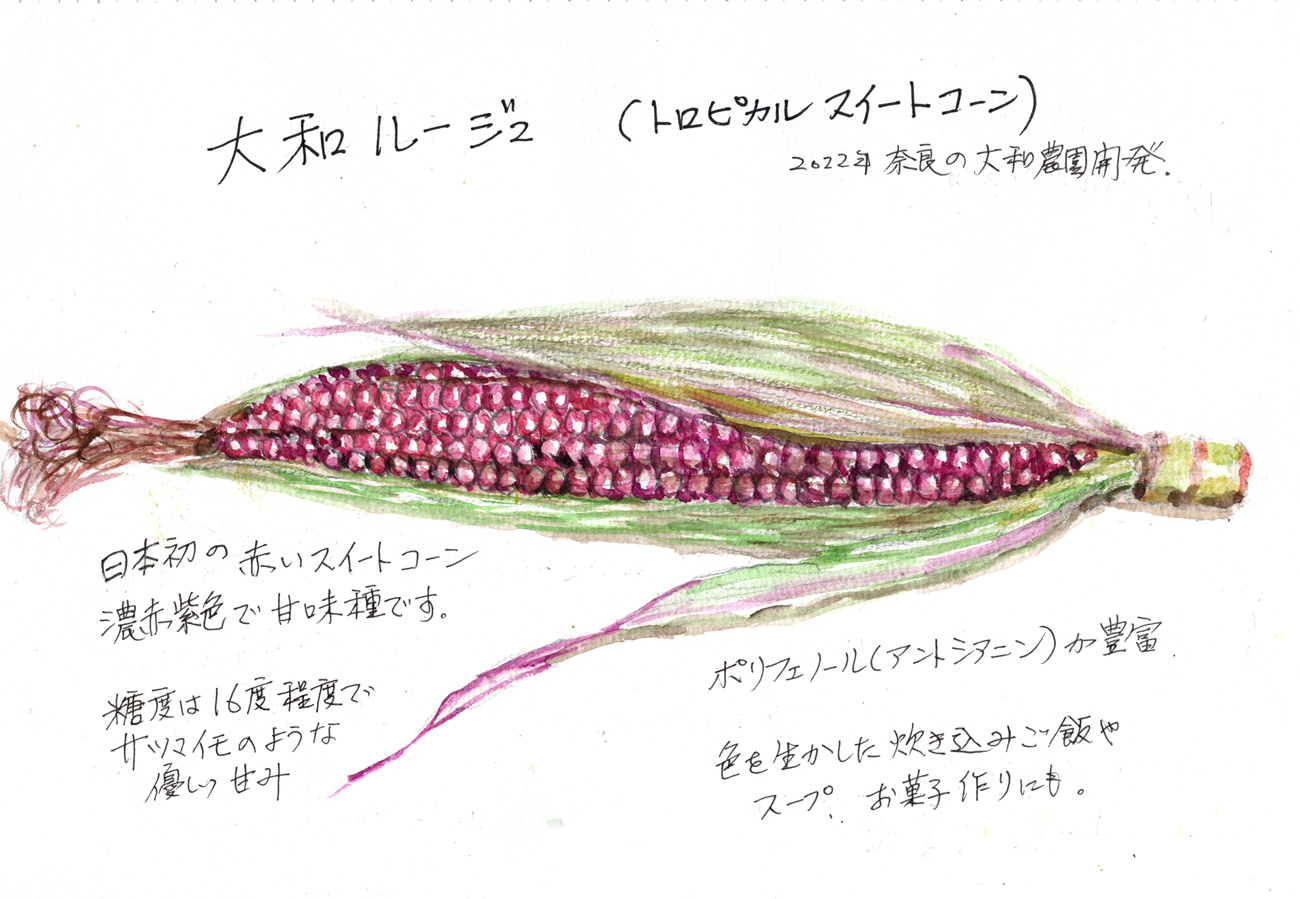 大和ルージュ
(トロピカルスイートコーン)
2022年 奈良の大和農園開発.
日本初の赤いスイートコーン
濃赤紫色で甘味種です。
糖度は16度程度で
サツマイモのような
優しい甘み
ポリフェノール(アントシアニン)が豊富
色を生かした炊き込みご飯や
スープ. お菓子作りにも。